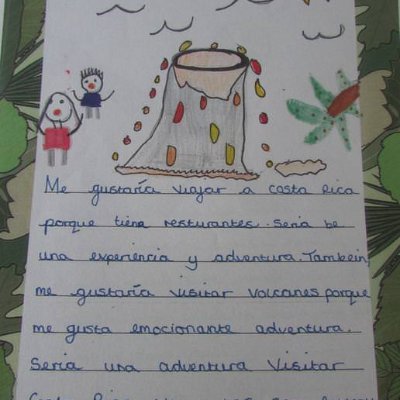 Me gustaría viajar a costa Rica
porque tiene resturantes. Seria be
una experiencia y adventura. Tambein
me gustaría visitar volcanes porque
me gusta emocionante adventura.
Seria una adventura visitar
Costa Rica